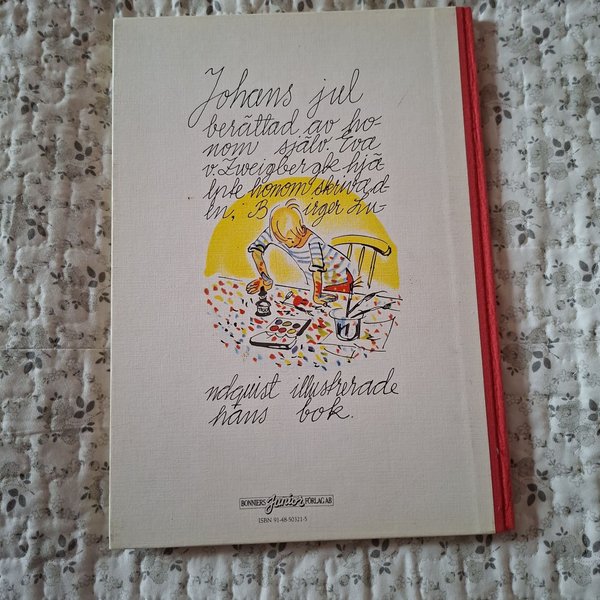 Johans jul
berättad av ho-
nom själv. Eva
v Zweigbergk hjä-
lpte honom skriva d-
en, Birger Lu-
ndquist illustrerade
hans bok.
BONNIERS Junior FÖRLAG AB
ISBN 91-48-50321-5